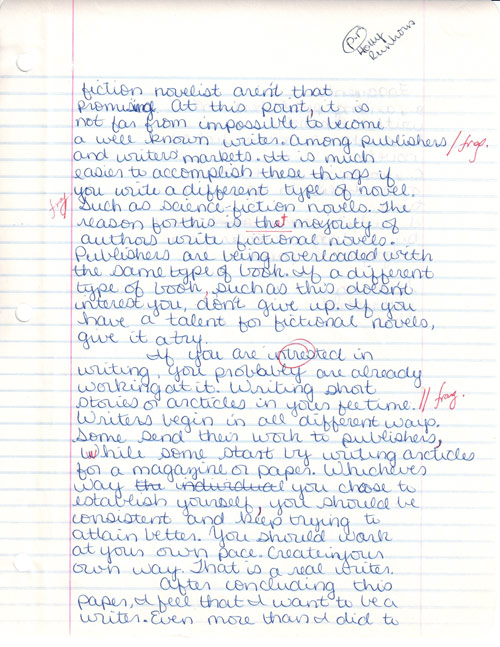 p.r
Holly
fiction novelist aren't that
promising At this point, it is
not far from impossible to become
a well known writer. Among publishers / frgs.
and writers markets. It is much
easier to accomplish these things if
you write a different type of novel.
frg Such as science-fiction novels. The
reason for this is that majority of
authors write fictional novels.
Publishers are being overloaded with
the same type of book. If a different
type of book, such as this doesn't
interest you, don't give up. If you
have a talent for fictional novels,
give it a try.
If you are intrested in
writing, you probably are already
working at it. Writing short
stories or arcticles in your fee time. // frag.
Writers begin in all different ways.
Some send their work to publishers,
while some start by writing arcticles
for a magazine or paper. Whichever
way the indivirdual you choose to
establish yourself, you should be
consistent and keep trying to
attain better. You should work
at your own pace. Create in your
own way. That is a real writer.
After concluding this
paper, I feel that I want to be a
writer. Even more than I did to